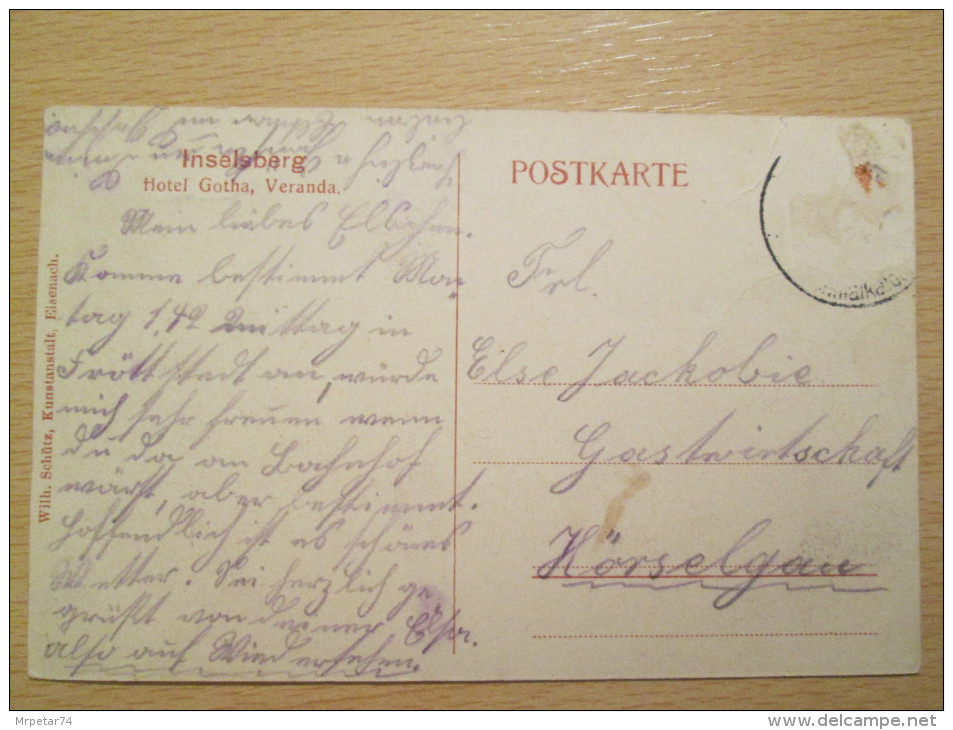 Inselsberg
Hotel Gotha, Veranda.
Mein liebes Elschen.
Komme bestimmt Mon-
tag 1,42 Mittag in
Fröttstädt an, würde
mich sehr freuen wenn
du da am Bahnhof
wärst, aber bestimmt.
Hoffendlich ist es schönes
Wetter. Sei herzlich ge
grüßt von deiner Elsa.
also auf Wiedersehen.
Wilh. Schütz, Kunstanstalt, Eisenach.
POSTKARTE
Frl.
Else Jackobie
Gastwirtschaft
Hörselgau
Mrpetar74
www.delcampe.net